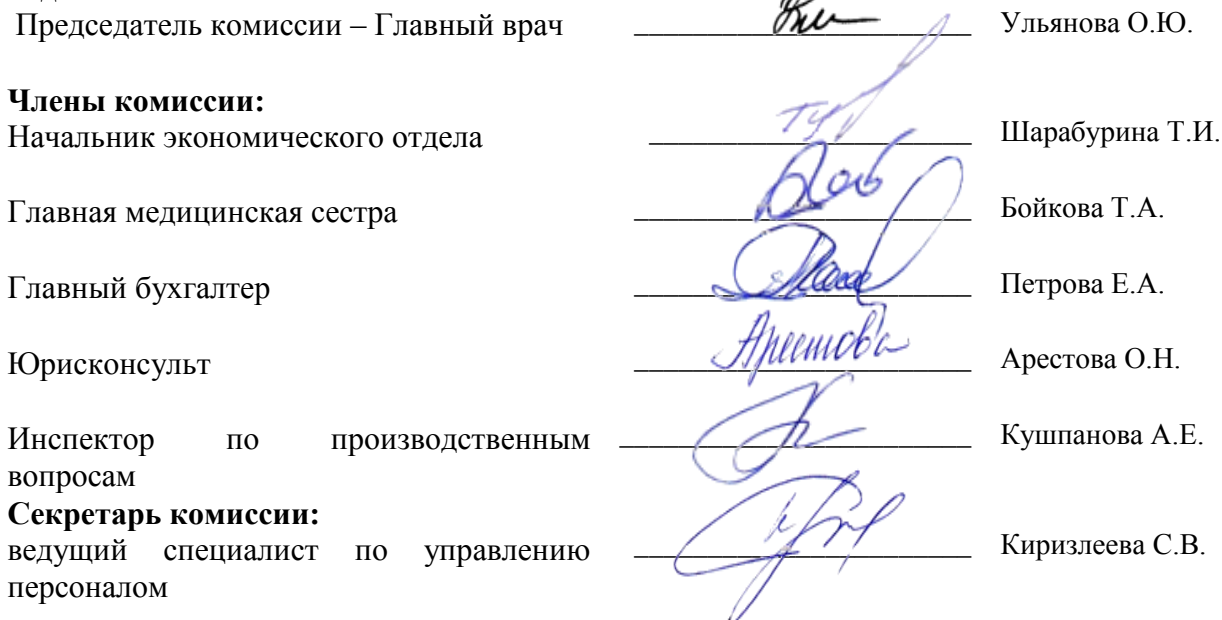 Председатель комиссии – Главный врач Ульянова О.Ю.
Члены комиссии:
Начальник экономического отдела Шарабурина Т.И.
Главная медицинская сестра Бойкова Т.А.
Главный бухгалтер Петрова Е.А.
Юрисконсульт Арестова Арестова О.Н.
Инспектор по производственным Кушпанова А.Е.
вопросам
Секретарь комиссии:
ведущий специалист по управлению Киризлеева С.В.
персоналом